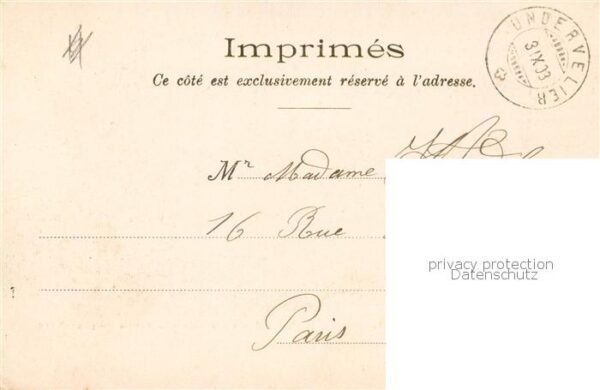 UNDERVELIER
3.IX.03
Imprimés
Ce côté est exclusivement réservé à l'adresse.
Mr Madame
16 Rue
Paris
privacy protection
Datenschutz